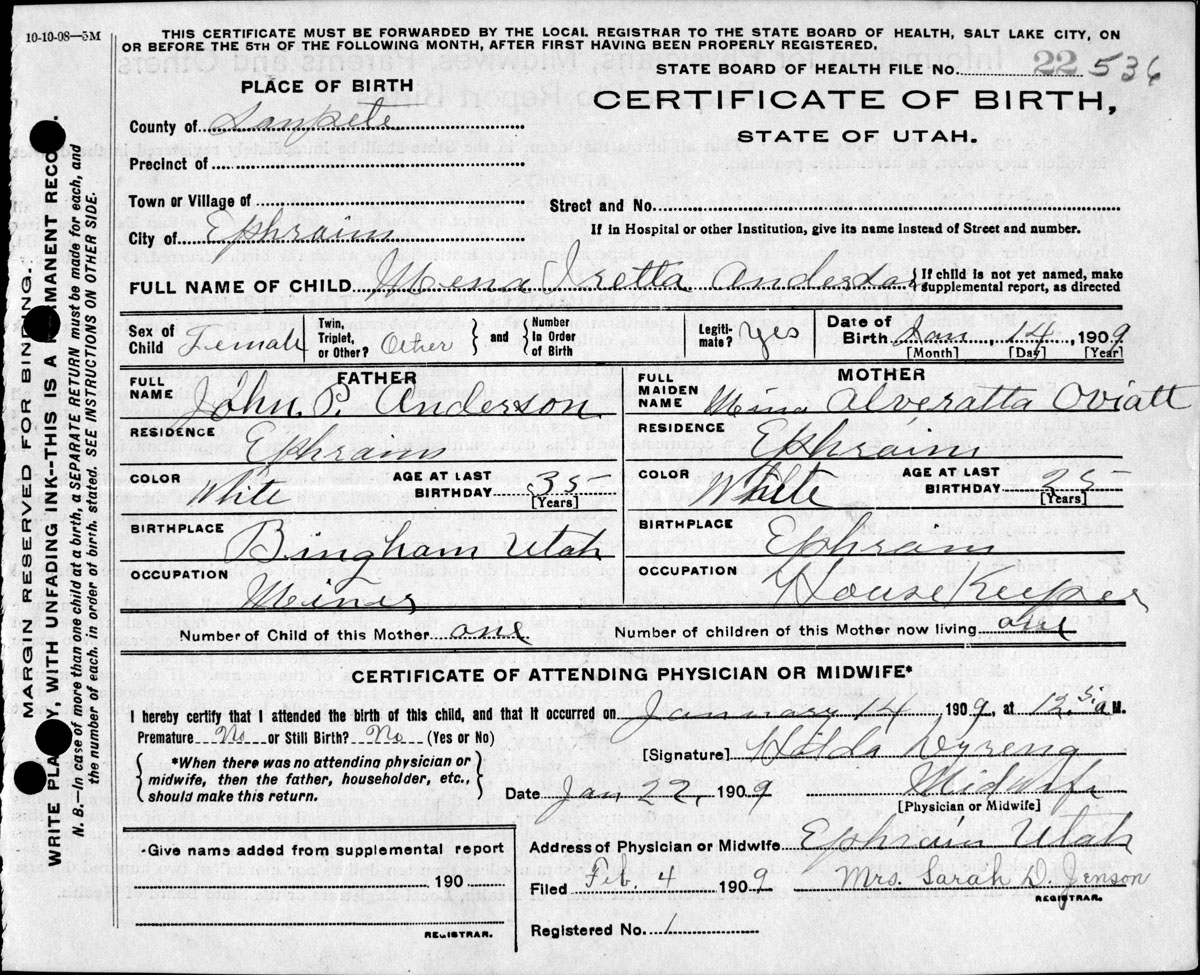 10-10-08—5M
THIS CERTIFICATE MUST BE FORWARDED BY THE LOCAL REGISTRAR TO THE STATE BOARD OF HEALTH, SALT LAKE CITY, ON
OR BEFORE THE 5TH OF THE FOLLOWING MONTH, AFTER FIRST HAVING BEEN PROPERLY REGISTERED.
STATE BOARD OF HEALTH FILE No. 22 536
PLACE OF BIRTH
CERTIFICATE OF BIRTH,
STATE OF UTAH.
County of Sanpete
Precinct of
Town or Village of
Street and No.
City of Ephraim
If in Hospital or other Institution, give its name instead of Street and number.
FULL NAME OF CHILD Mena Iretta Anderson { If child is not yet named, make
supplemental report, as directed
Sex of Child Female
Twin, Triplet, or Other? Other } and { Number In Order of Birth
Legiti-mate? Yes
Date of Birth Jan, 14, 1909
[Month] [Day] [Year]
FATHER
FULL NAME John. P. Anderson.
RESIDENCE Ephraim
COLOR White
AGE AT LAST BIRTHDAY 35
[Years]
BIRTHPLACE Bingham Utah
OCCUPATION
MOTHER
FULL MAIDEN NAME Mina Alveratta Oviatt
RESIDENCE Ephraim
COLOR White
AGE AT LAST BIRTHDAY 25
[Years]
BIRTHPLACE Ephraim
OCCUPATION House Keeper
Number of Child of this Mother one
Number of children of this Mother now living one
CERTIFICATE OF ATTENDING PHYSICIAN OR MIDWIFE*
I hereby certify that I attended the birth of this child, and that it occurred on January 14, 1909, at 12.5 a M.
Premature No or Still Birth? No (Yes or No)
{ *When there was no attending physician or
midwife, then the father, householder, etc.,
should make this return. }
[Signature] Hilda Dyreng
Date Jan 22, 1909
Midwife
[Physician or Midwife]
Address of Physician or Midwife Ephraim Utah
Filed Feb. 4 1909
Mrs. Sarah D. Jenson
REGISTRAR.
Registered No. 1
Give name added from supplemental report
190
REGISTRAR.
MARGIN RESERVED FOR BINDING.
WRITE PLA Y, WITH UNFADING INK--THIS IS A MANENT RECO .
N. B.—In case of more than one child at a birth, a SEPARATE RETURN must be made for each, and
the number of each. in order of birth. stated. SEE INSTRUCTIONS ON OTHER SIDE.